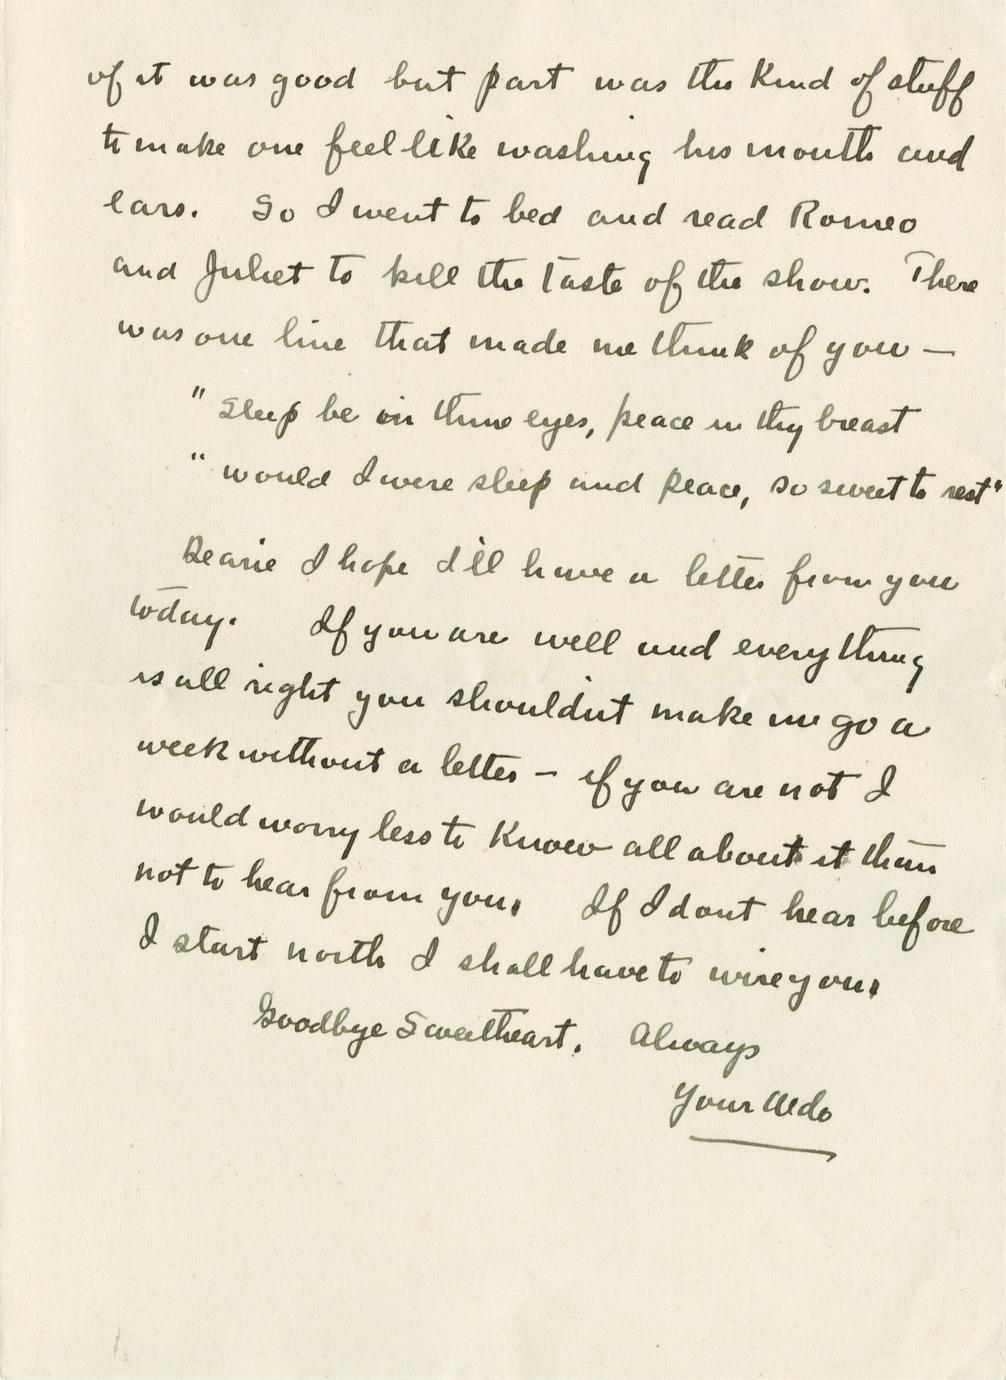 of it was good but part was the kind of stuff
to make one feel like washing his mouth and
ears. So I went to bed and read Romeo
and Juliet to kill the taste of the show. There
was one line that made me think of you —
"Sleep be in thine eyes, peace in thy breast
"would I were sleep and peace, so sweet to rest"
Dearie I hope I'll have a letter from you
today. If you are well and everything
is all right you shouldn't make me go a
week without a letter – if you are not I
would worry less to know all about it than
not to hear from you. If I dont hear before
I start north I shall have to wire you.
Goodbye Sweetheart. Always
Your Aldo